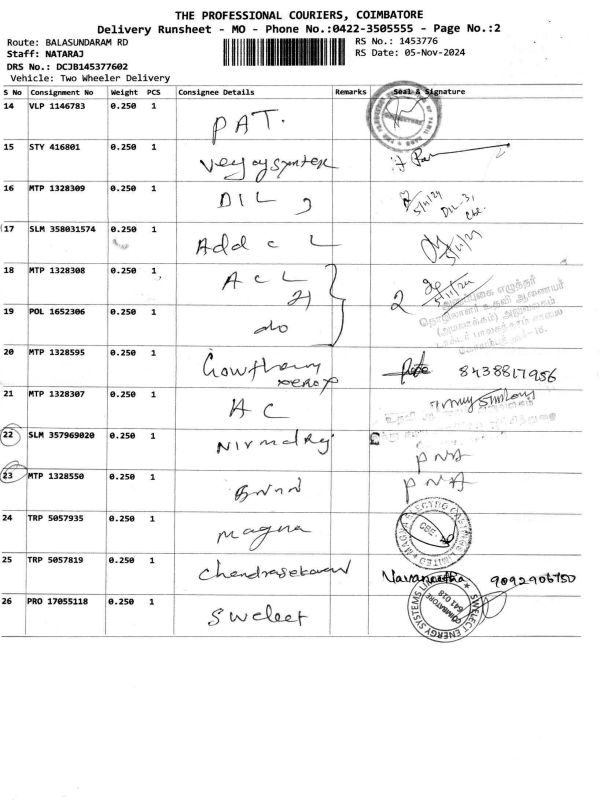 THE PROFESSIONAL COURIERS, COIMBATORE
Delivery Runsheet - MO - Phone No.:0422-3505555 - Page No.:2
Route: BALASUNDARAM RD
RS No.: 1453776
Staff: NATARAJ
RS Date: 05-Nov-2024
DRS No.: DCJB145377602
Vehicle: Two Wheeler Delivery
S No Consignment No Weight PCS Consignee Details Remarks Seal & Signature
14 VLP 1146783 0.250 1 PAT.
15 STY 416801 0.250 1
16 MTP 1328309 0.250 1 DIL 3 5/11/24 DIL-3, CBE.
17 SLM 358031574 0.250 1 Add C L 5/11/24
18 MTP 1328308 0.250 1 ACL 21 2 5/11/24
19 POL 1652306 0.250 1 do
தொழிலாளர் உதவி ஆணையர்
20 MTP 1328595 0.250 1 Gowtham xerox 8438817956
21 MTP 1328307 0.250 1 A C
22 SLM 357969020 0.250 1 Nirmal Raj PNA
23 MTP 1328550 0.250 1 PNA
24 TRP 5057935 0.250 1 Magna MAGNA ELECTRO CASTINGS LIMITED CBE
25 TRP 5057819 0.250 1 Chendrasekaran Navaneetha 9092906750
26 PRO 17055118 0.250 1 Swelect SWELECT ENERGY SYSTEMS LIMITED COIMBATORE 641 018